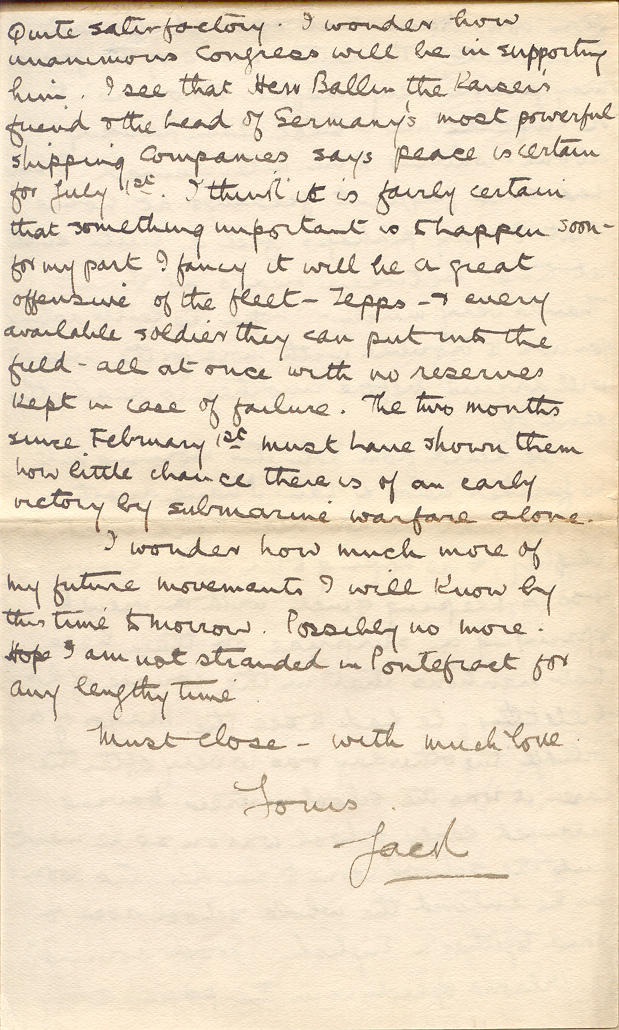 Quite satisfactory. I wonder how
unanimous Congress will be in supporting
him. I see that Herr Ballin the Kaiser's
friend & the head of Germany's most powerful
shipping companies says peace is certain
for July 1st. I think it is fairly certain
that something important is to happen soon -
for my part I fancy it will be a great
offensive of the fleet - Zepps - & every
available soldier they can put into the
field - all at once with no reserves
kept in case of failure. The two months
since February 1st must have shown them
how little chance there is of an early
victory by submarine warfare alone.
I wonder how much more of
my future movements I will know by
this time tomorrow. Possibly no more.
Hope I am not stranded in Pontefract for
any lengthy time
Must close - with much love
Yours.
Jack